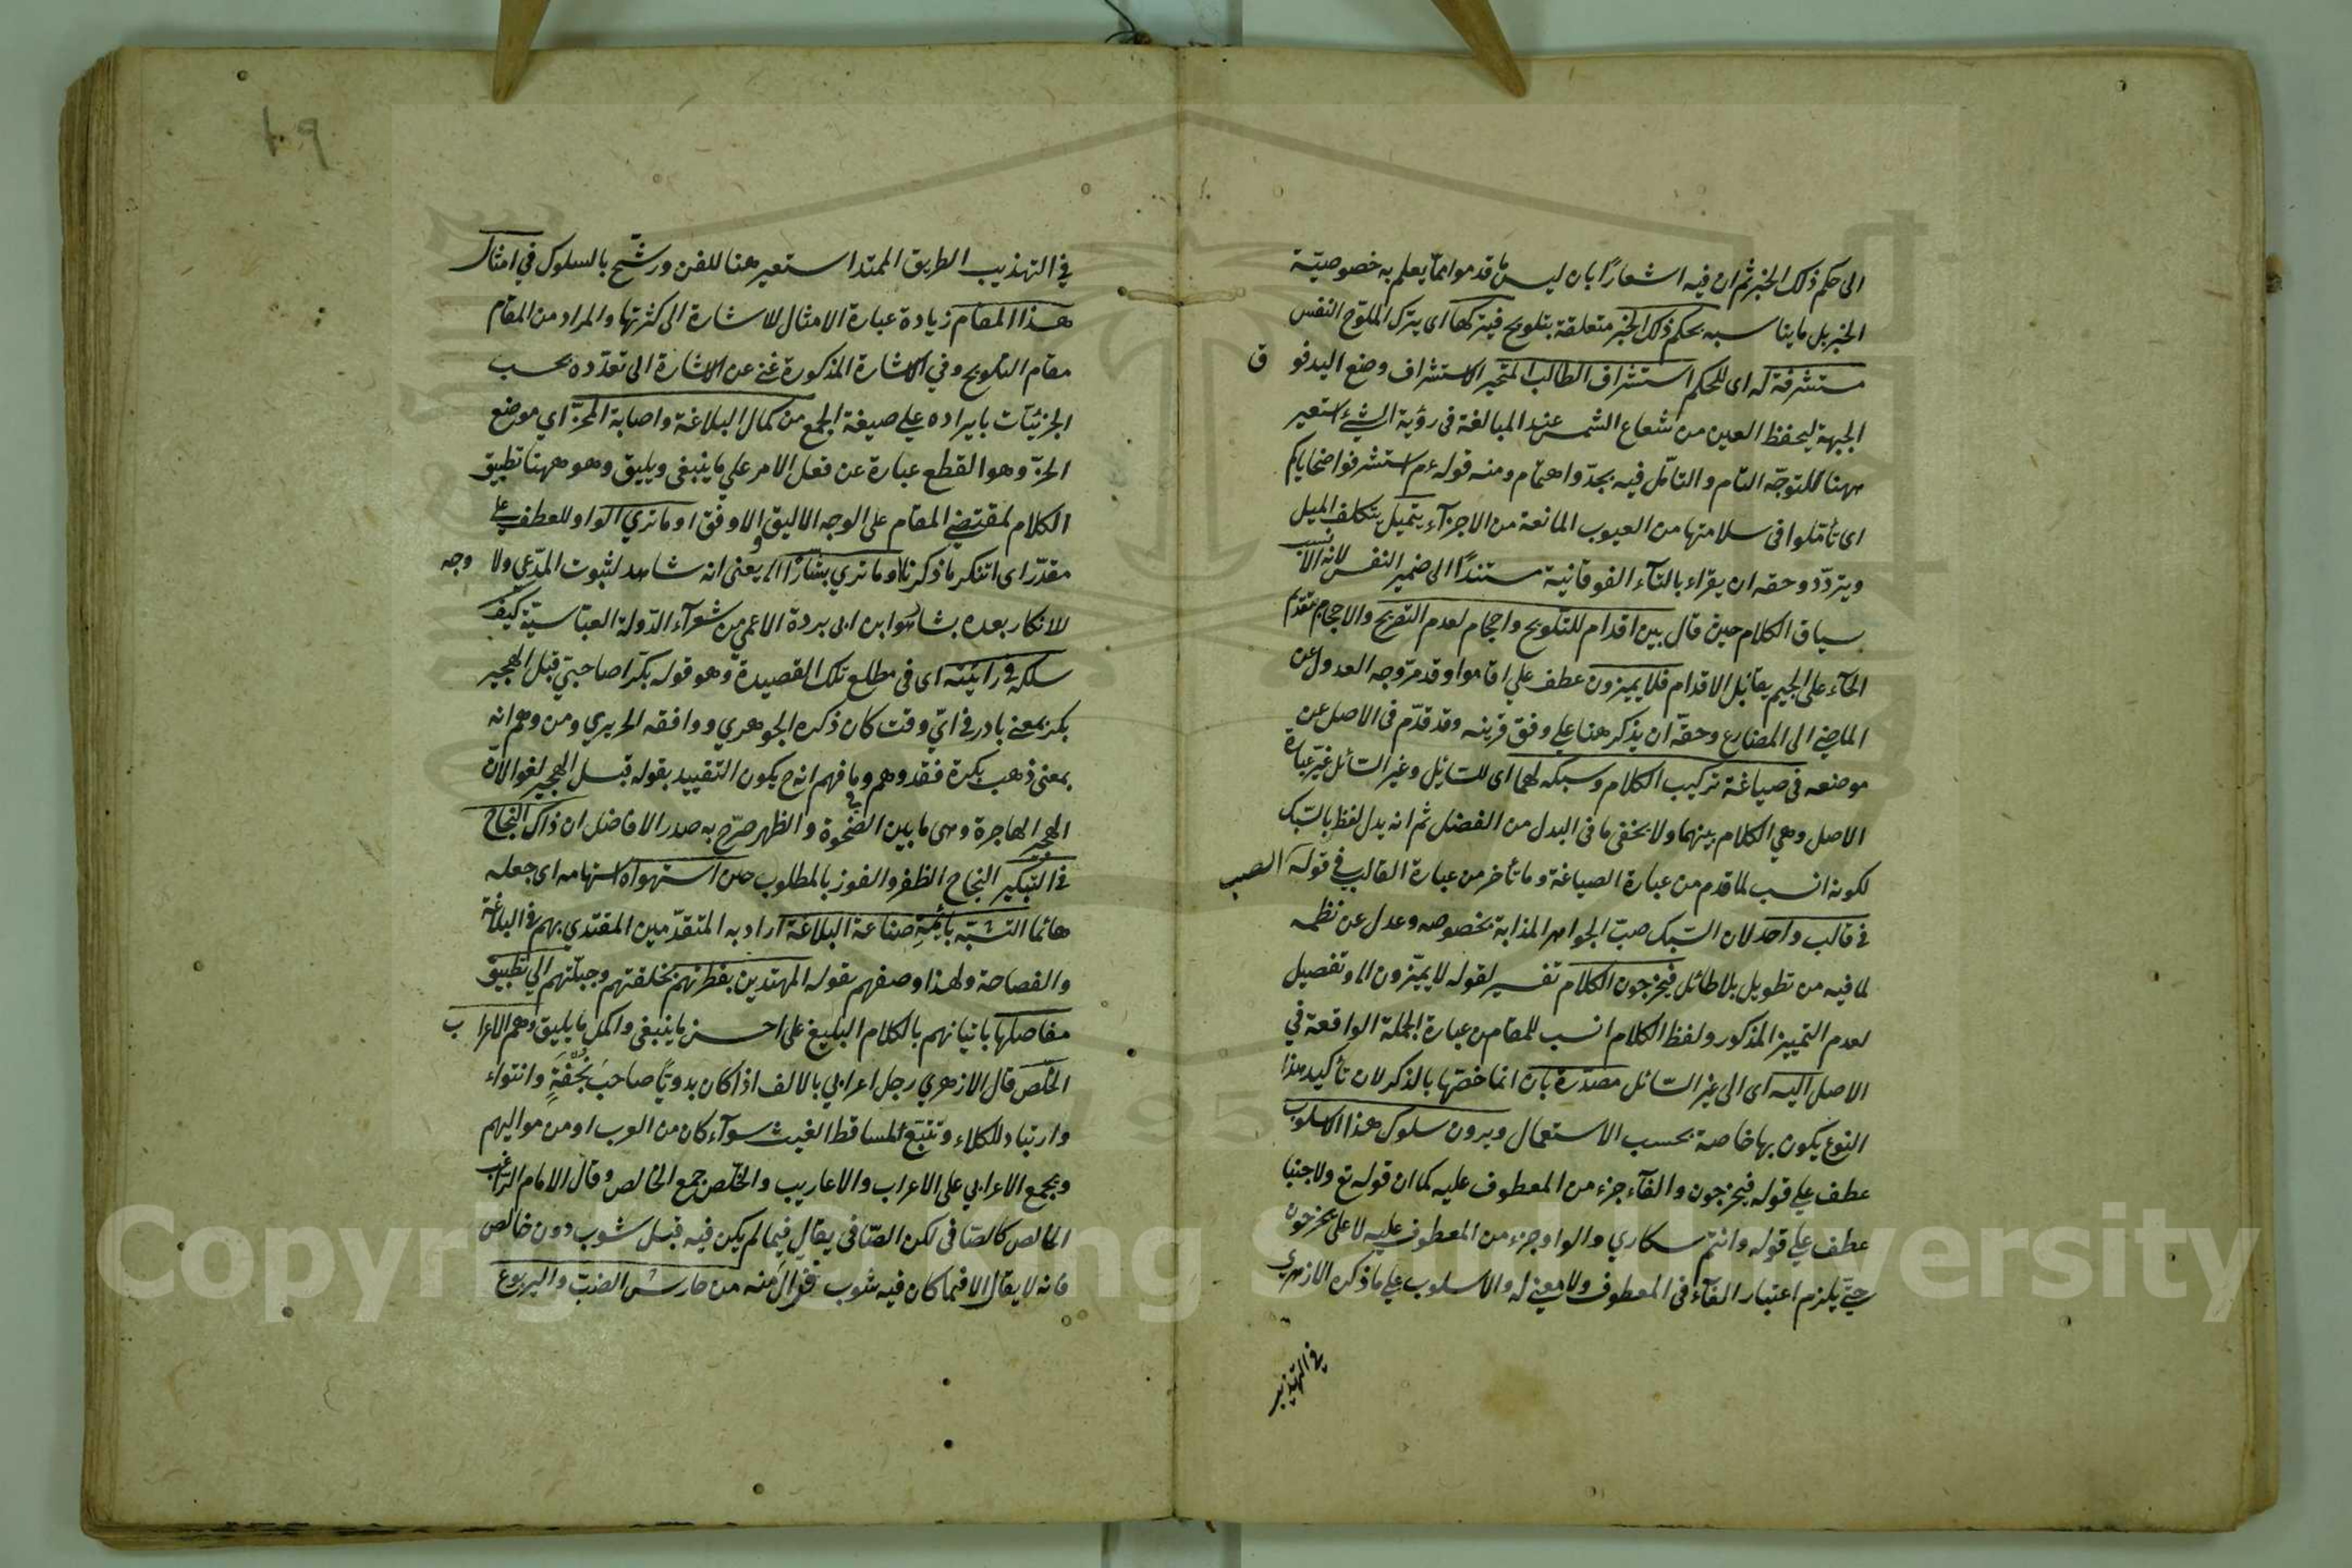 الى حكم ذلك الخبر ثم ان فيه اشعارًا بان ليس ما قدموا مما يعلم به خصوصيّة
الخبر بل ما يناسبه بحكم ذلك الخبر متعلقة بتلويح فيتركها اى يترك الملوّح النفس
مستشرفة له اى للحكم استشراف الطالب المتحير الاستشراف وضع اليد فو ق
الجبهة ليحفظ العين من شعاع الشمس عند المبالغة فى رؤية الشيئ استعير
ههنا للتوجّه التام والتأمّل فيه بجدّ واهتمام ومنه قوله عم استشرفوا ضحاياكم
اى تأمّلوا فى سلامتها من العيوب المانعة من الاجزآء يتميل يتكلف الميل
ويتردّد وحقه ان يقرٰاء بالتآء الفوقانية مستندًا الى ضمير النفس لانه الانسب
سياق الكلام حيث قال بين اقدام للتلويح واحجام لعدم التصريح والاحجام بتقديم
الحآء على الجيم يقابل الاقدام فلا يميزون عطف علي اقاموا وقد مرّ وجه العدول عن
الماضي الى المضارع وحقّه ان يذكر هنا علي وفق قرينه وقد قدّم فى الاصل عن
موضعه فى صياغة تركيب الكلام وسبكه لهما اى للسّائل وغير السّائل غيّر عبارة
الاصل وهي الكلام بينهما ولا يخفى ما فى البدل من الفضل ثم انه بدل لفظ بالسّبك
لكونه انسب لما قدم من عبارة الصياغة وما تأخر من عبارة القالب في قوله الصب
فى قالب واحد لان السّبك صبّ الجواهر المذابة بخصوصه وعدل عن نظمه
لما فيه من تطويل بلا طائل فيخرجون الكلام تفسير لقوله لا يميّزون الى وتفصيل
لعدم التمييز المذكور ولفظ الكلام انسب للمقام من عبارة الجملة الواقعة في
الاصل اليه اى الى غير السّائل مصدّرة بان انما خصّها بالذكر لان تأكيد هذا
النوع يكون بها خاصة بحسب الاستعمال ويرون سلوك هذا الاسلوب
عطف علي قوله فيخرجون والفآء جزء من المعطوف عليه كما ان قوله تع ولا جنبا
عطف علي قوله وانتم سكاري والواو جزء من المعطوف عليه لا على يخرجون
حتّي يلزم اعتبار الفآء فى المعطوف ولا معني له والاسلوب علي ما ذكره الازهري
في التهذيب
١٠٩
في التهذيب الطريق الممتد استعير هنا للفن ورشّح بالسلوك في امثال
هذا المقام زيادة عبارة الامثال للاشارة الى كثرتها والمراد من المقام
مقام التلويح وفي الاشارة المذكورة غني عن الاشارة الى تعدّده بحسب
الجزئيّات بايراده علي صيغة الجمع من كمال البلاغة واصابة المحزّ اي موضع
الحزّ وهو القطع عبارة عن فعل الامر علي ما ينبغى ويليق وهو ههنا تطبيق
الكلام لمقتضي المقام على الوجه الاليق والاوفق او ما تري الواو للعطف علي
مقدّر اى اتنكر ما ذكرنا وما تري بشارًا الى يعنى انه شاهد لثبوت المدّعي ولا وجه
للانكار بعده بشار هو ابن ابى بردة الاعمي من شعرآء الدّولة العبّاسيّة كيف
سلكه في رائيّته اى فى مطلع تلك القصيدة وهو قوله بكّرا صاحبيّ قبل الهجير
بكر بمعني بادر في ايّ وقت كان ذكره الجوهري ووافقه الحريري ومن وهم انه
بمعنى ذهب بكرة فقد وهم وما فهم انه ح يكون التقييد بقوله قبل الهجير لغوا لانّ
الهجير الهاجرة وهى ما بين الضّحوة والظهر صرّح به صدر الافاضل ان ذاك النجاح
فى التبكير النجاح الظفر والفوز بالمطلوب حين استهواه استهامه اى جعله
هائما التشبّه بأئمّةِ صناعة البلاغة اراد به المتقدّمين المقتدي بهم في البلاغة
والفصاحة ولهذا وصفهم بقوله المهتدين بفطرتهم بخلقتهم وجبلّتهم الي تطبيق
مفاصلها باتيانهم بالكلام البليغ على احسن ما ينبغى واكمل ما يليق وهم الاعرا ب
الخلّص قال الازهري رجل اعرابي بالالف اذا كان بدويًّا صاحبَ نُجْعَةٍ وانتواء
وارتياد للكلاء وتتبّع لمساقط الغيث سوآء كان من العرب او من مواليهم
ويجمع الاعرابي على الاعراب والاعاريب والخلّص جمع الخالص وقال الامام الرّاغب
الخالص كالصّافى لكن الصّافى يقال فيما لم يكن فيه قبل شوب دون خالص
فانه لا يقال الا فيما كان فيه شوب فزال منه من حارش الضبّ واليربوع